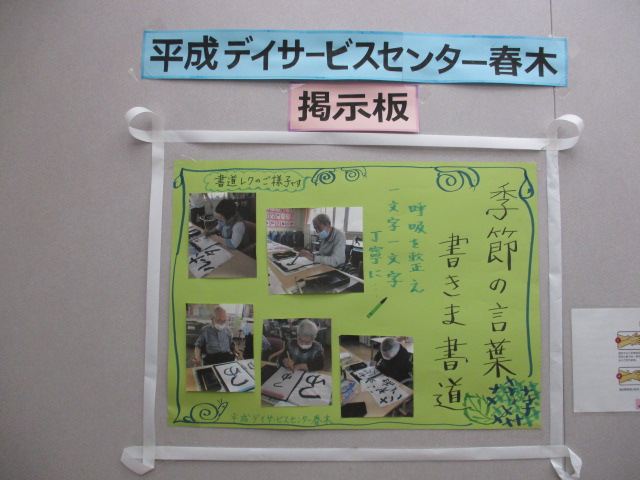 平成デイサービスセンター春木
掲示板
書道レクのご様子です
季節の言葉
書きま書道
呼吸を整え
一文字一文字
丁寧に
平成デイサービスセンター春木